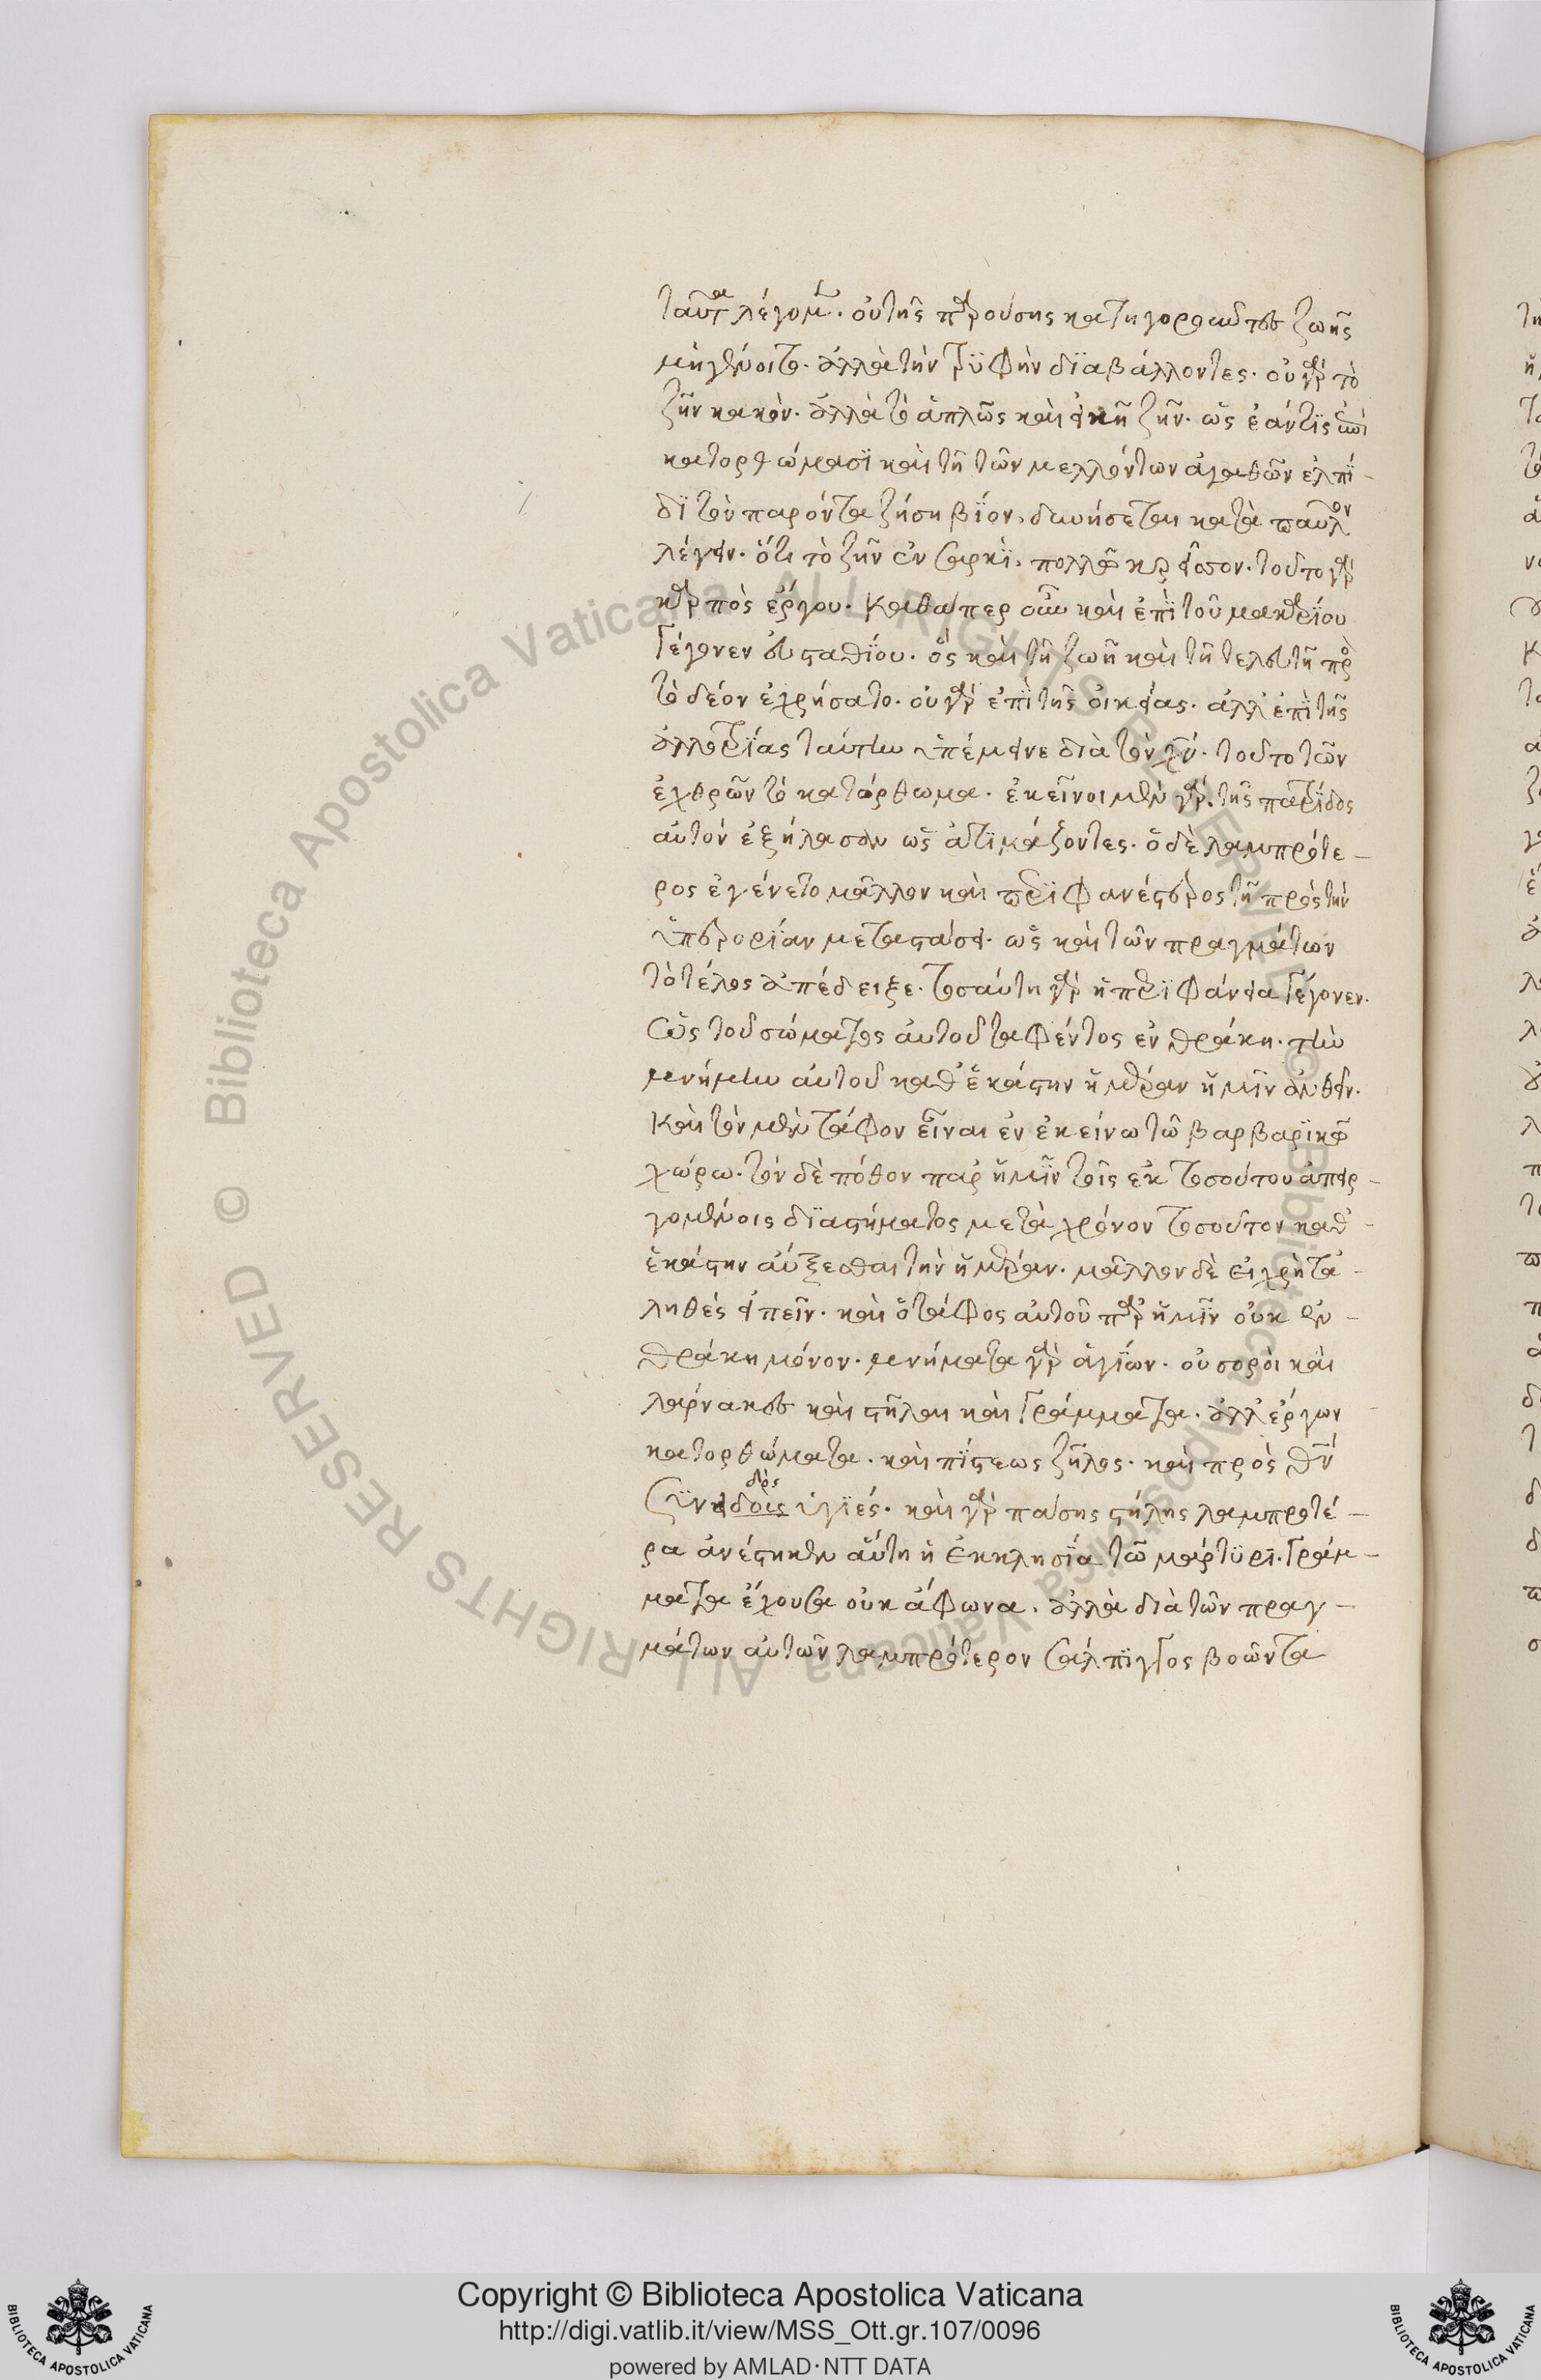 ταῦτα λέγομεν. οὐ τῆς παρούσης κατηγοροῦντες ζωῆς
μὴ γένοιτο. ἀλλὰ τὴν τρϋφὴν δϊαβάλλοντες. οὐ γὰρ τὸ
ζῆν κακὸν. ἀλλὰ τὸ ἁπλῶς καὶ εἰκῆ ζῆν. ὡς ἐάν τϊς ἐπὶ
κατορθώμασϊ καὶ τῆ τῶν μελλόντων ἀγαθῶν ἐλπϊ-
δϊ τὸν παρόντα ζήση βϊον, δυνήσεται κατὰ παῦλον
λέγειν. ὅτι τὸ ζῆν ἐν σαρκϊ, πολλῶ κρεῖσσον. τοῦτο γάρ
καρπὸς ἔργου. Καθάπερ οὖν καὶ ἐπὶ τοῦ μακαρϊου
Γέγονεν εὐσταθϊου. ὃς καὶ τῆ ζωῆ καὶ τῆ τελευτῆ πρὸς
τὸ δέον ἐχρήσατο. οὐ γὰρ ἐπὶ τῆς οἰκείας. ἀλλ' ἐπὶ τῆς
ἀλλοτρϊας ταύτην ὑπέμεινε διὰ τὸν χν. τοῦτο τῶν
ἐχθρῶν τὸ κατόρθωμα. ἐκεῖνοι μὲν γὰρ. τῆς πατρϊδος
αὐτὸν ἐξήλασαν ὡς ἀτϊμάζοντες. ὁ δὲ λαμπρότε-
ρος ἐγένετο μᾶλλον καὶ περϊφανέστερος τῆ πρὸς τὴν
ὑπερορϊαν μεταστάσει. ὡς καὶ τῶν πραγμάτων
τὸ τέλος ἀπέδειξε. τοσαύτη γὰρ ἡ περϊφάνεια Γέγονεν.
ὡς τοῦ σώματος αὐτοῦ ταφέντος ἐν θράκη. τὴν
μνήμην αὐτοῦ καθ' ἑκάστην ἡμέραν ἡμῖν ἀνθεῖν.
Καὶ τὸν μὲν τάφον εἶναι ἐν ἐκείνω τῶ βαρβαρϊκῶ
χώρω. τὸν δὲ πόθον παρ' ἡμῖν τοῖς ἐκ τοσούτου ἀπειρ-
γομένοις δϊαστήματος μετὰ χρόνον τοσοῦτον καθ'-
ἑκάστην αὔξεσθαι τὴν ἡμέραν. μᾶλλον δὲ εἰ χρὴ τἀ-
ληθὲς εἰπεῖν. καὶ ὁ τάφος αὐτοῦ παρ' ἡμῖν οὐκ ἐν-
θράκη μόνον. μνήματα γὰρ ἁγϊων. οὐ σοροὶ καὶ
λάρνακες καὶ στῆλαι καὶ Γράμματα. ἀλλ' ἔργων
κατορθώματα. καὶ πϊστεως ζῆλος. καὶ πρὸς θν
συνειδοῖς ὑγϊές. καὶ γὰρ πάσης στήλης λαμπροτέ-
ρα ἀνέστηκεν αὕτη ἡ ἐκκλησϊα τῶ μάρτϋρϊ. Γράμ-
ματα ἔχουσα οὐκ ἄφωνα. ἀλλὰ διὰ τῶν πραγ-
μάτων αὐτῶν λαμπρότερον σάλπιγγος βοῶντα
Copyright © Biblioteca Apostolica Vaticana
http://digi.vatlib.it/view/MSS_Ott.gr.107/0096
powered by AMLAD·NTT DATA